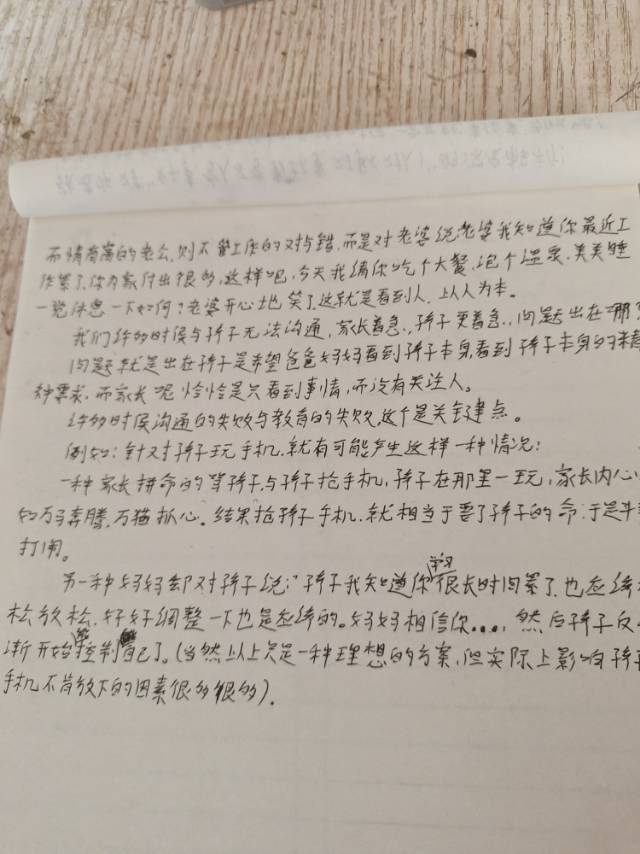 而情商高的老公,则不管工作的对与错,而是对老婆说老婆我知道你最近工
作累了,你为家付出很多,这样吧,今天我请你吃个大餐,泡个温泉,美美睡
一觉休息一下如何?老婆开心地笑了,这就是看到人,以人为本。
我们许多时候与孩子无法沟通,家长着急,孩子更着急,问题出在哪
问题就是出在孩子是希望爸爸妈妈看到孩子本身,看到孩子本身的精
种需求,而家长呢恰恰是只看到事情,而没有关注人。
许多时候沟通的失败与教育的失败,这个是关键点。
例如:针对孩子玩手机,就有可能产生这样一种情况:
一种家长拼命的等孩子,与孩子抢手机,孩子在那里一玩,家长内心
如万马奔腾,万猫抓心。结果抢孩子手机,就相当于要了孩子的命,于是
打闹。
另一种妈妈却对孩子说:"孩子我知道你学习很长时间累了,也应该
松放松,好好调整一下也是应该的。妈妈相信你...,然后孩子反
渐开始能控制自己了。(当然以上只是一种理想的方案,但实际上影响孩
手机不肯放下的因素很多很多)。